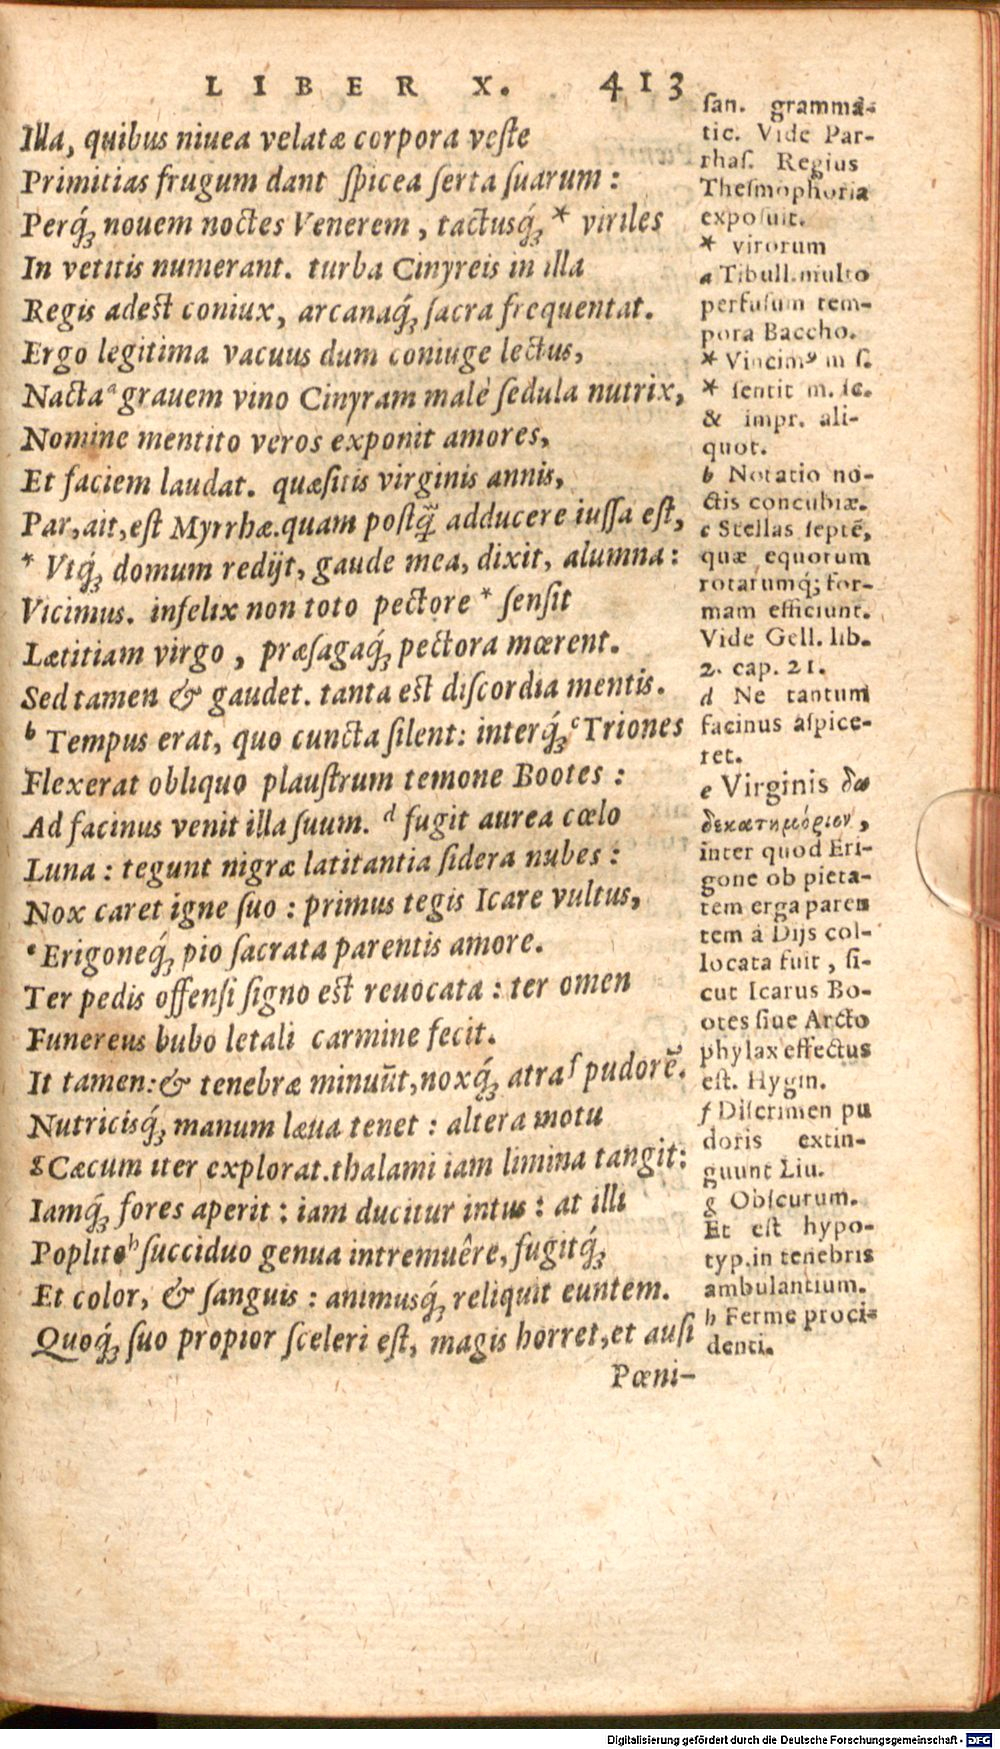 LIBER X. 413
Illa, quibus niuea velatæ corpora veſte
Primitias frugum dant ſpicea ſerta ſuarum :
Perq́; nouem noctes Venerem, tactusq́; * viriles
In vetitis numerant. turba Cinyreis in illa
Regis adest coniux, arcanaq́; ſacra frequentat.
Ergo legitima vacuus dum coniuge lectus,
Nacta ᵃ grauem vino Cinyram malè ſedula nutrix,
Nomine mentito veros exponit amores,
Et faciem laudat. quæſitis virginis annis,
Par, ait, eſt Myrrhæ. quam poſtq̃ adducere iuſſa eſt,
* Vtq́; domum redijt, gaude mea, dixit, alumna :
Vicimus. infelix non toto pectore * ſenſit
Lætitiam virgo, præſagaq́; pectora mœrent.
Sed tamen & gaudet. tanta est diſcordia mentis.
ᵇ Tempus erat, quo cuncta ſilent: interq́; ᶜ Triones
Flexerat obliquo plauſtrum temone Bootes :
Ad facinus venit illa ſuum. ᵈ fugit aurea cœlo
Luna : tegunt nigræ latitantia ſidera nubes :
Nox caret igne ſuo : primus tegis Icare vultus,
ᵉ Erigoneq́; pio ſacrata parentis amore.
Ter pedis offenſi ſigno est reuocata : ter omen
Funereus bubo letali carmine fecit.
It tamen: & tenebræ minuūt, noxq́; atra ᶠ pudorē.
Nutricisq́; manum læua tenet : altera motu
ᵍ Cæcum iter explorat. thalami iam limina tangit:
Iamq́; fores aperit : iam ducitur intus : at illi
Poplite ʰ ſucciduo genua intremuêre, fugitq́;
Et color, & ſanguis : animusq́; reliquit euntem.
Quoq́; ſuo propior ſceleri eſt, magis horret, et auſi
Pœni-
ſan. gramma-
tic. Vide Par-
rhaſ. Regius
Theſmophoria
expoſuit.
* virorum
a Tibull. multo
perfuſum tem-
pora Baccho.
* Vincimꝰ m ſ.
* ſentit m. ſc.
& impr. ali-
quot.
b Notatio no-
ctis concubiæ.
c Stellas ſeptē,
quæ equorum
rotarumq́; for-
mam efficiunt.
Vide Gell. lib.
2. cap. 21.
d Ne tantum
facinus aſpice-
ret.
e Virginis δω
δεκατημόριον,
inter quod Eri-
gone ob pieta-
tem erga paren
tem à Dijs col-
locata fuit, ſi-
cut Icarus Bo-
otes ſiue Arcto
phylax effectus
eſt. Hygin.
f Diſcrimen pu
doris extin-
guunt Liu.
g Obſcurum.
Et eſt hypo-
typ. in tenebris
ambulantium.
h Ferme proci-
denti.
Digitalisierung gefördert durch die Deutsche Forschungsgemeinschaft - DFG